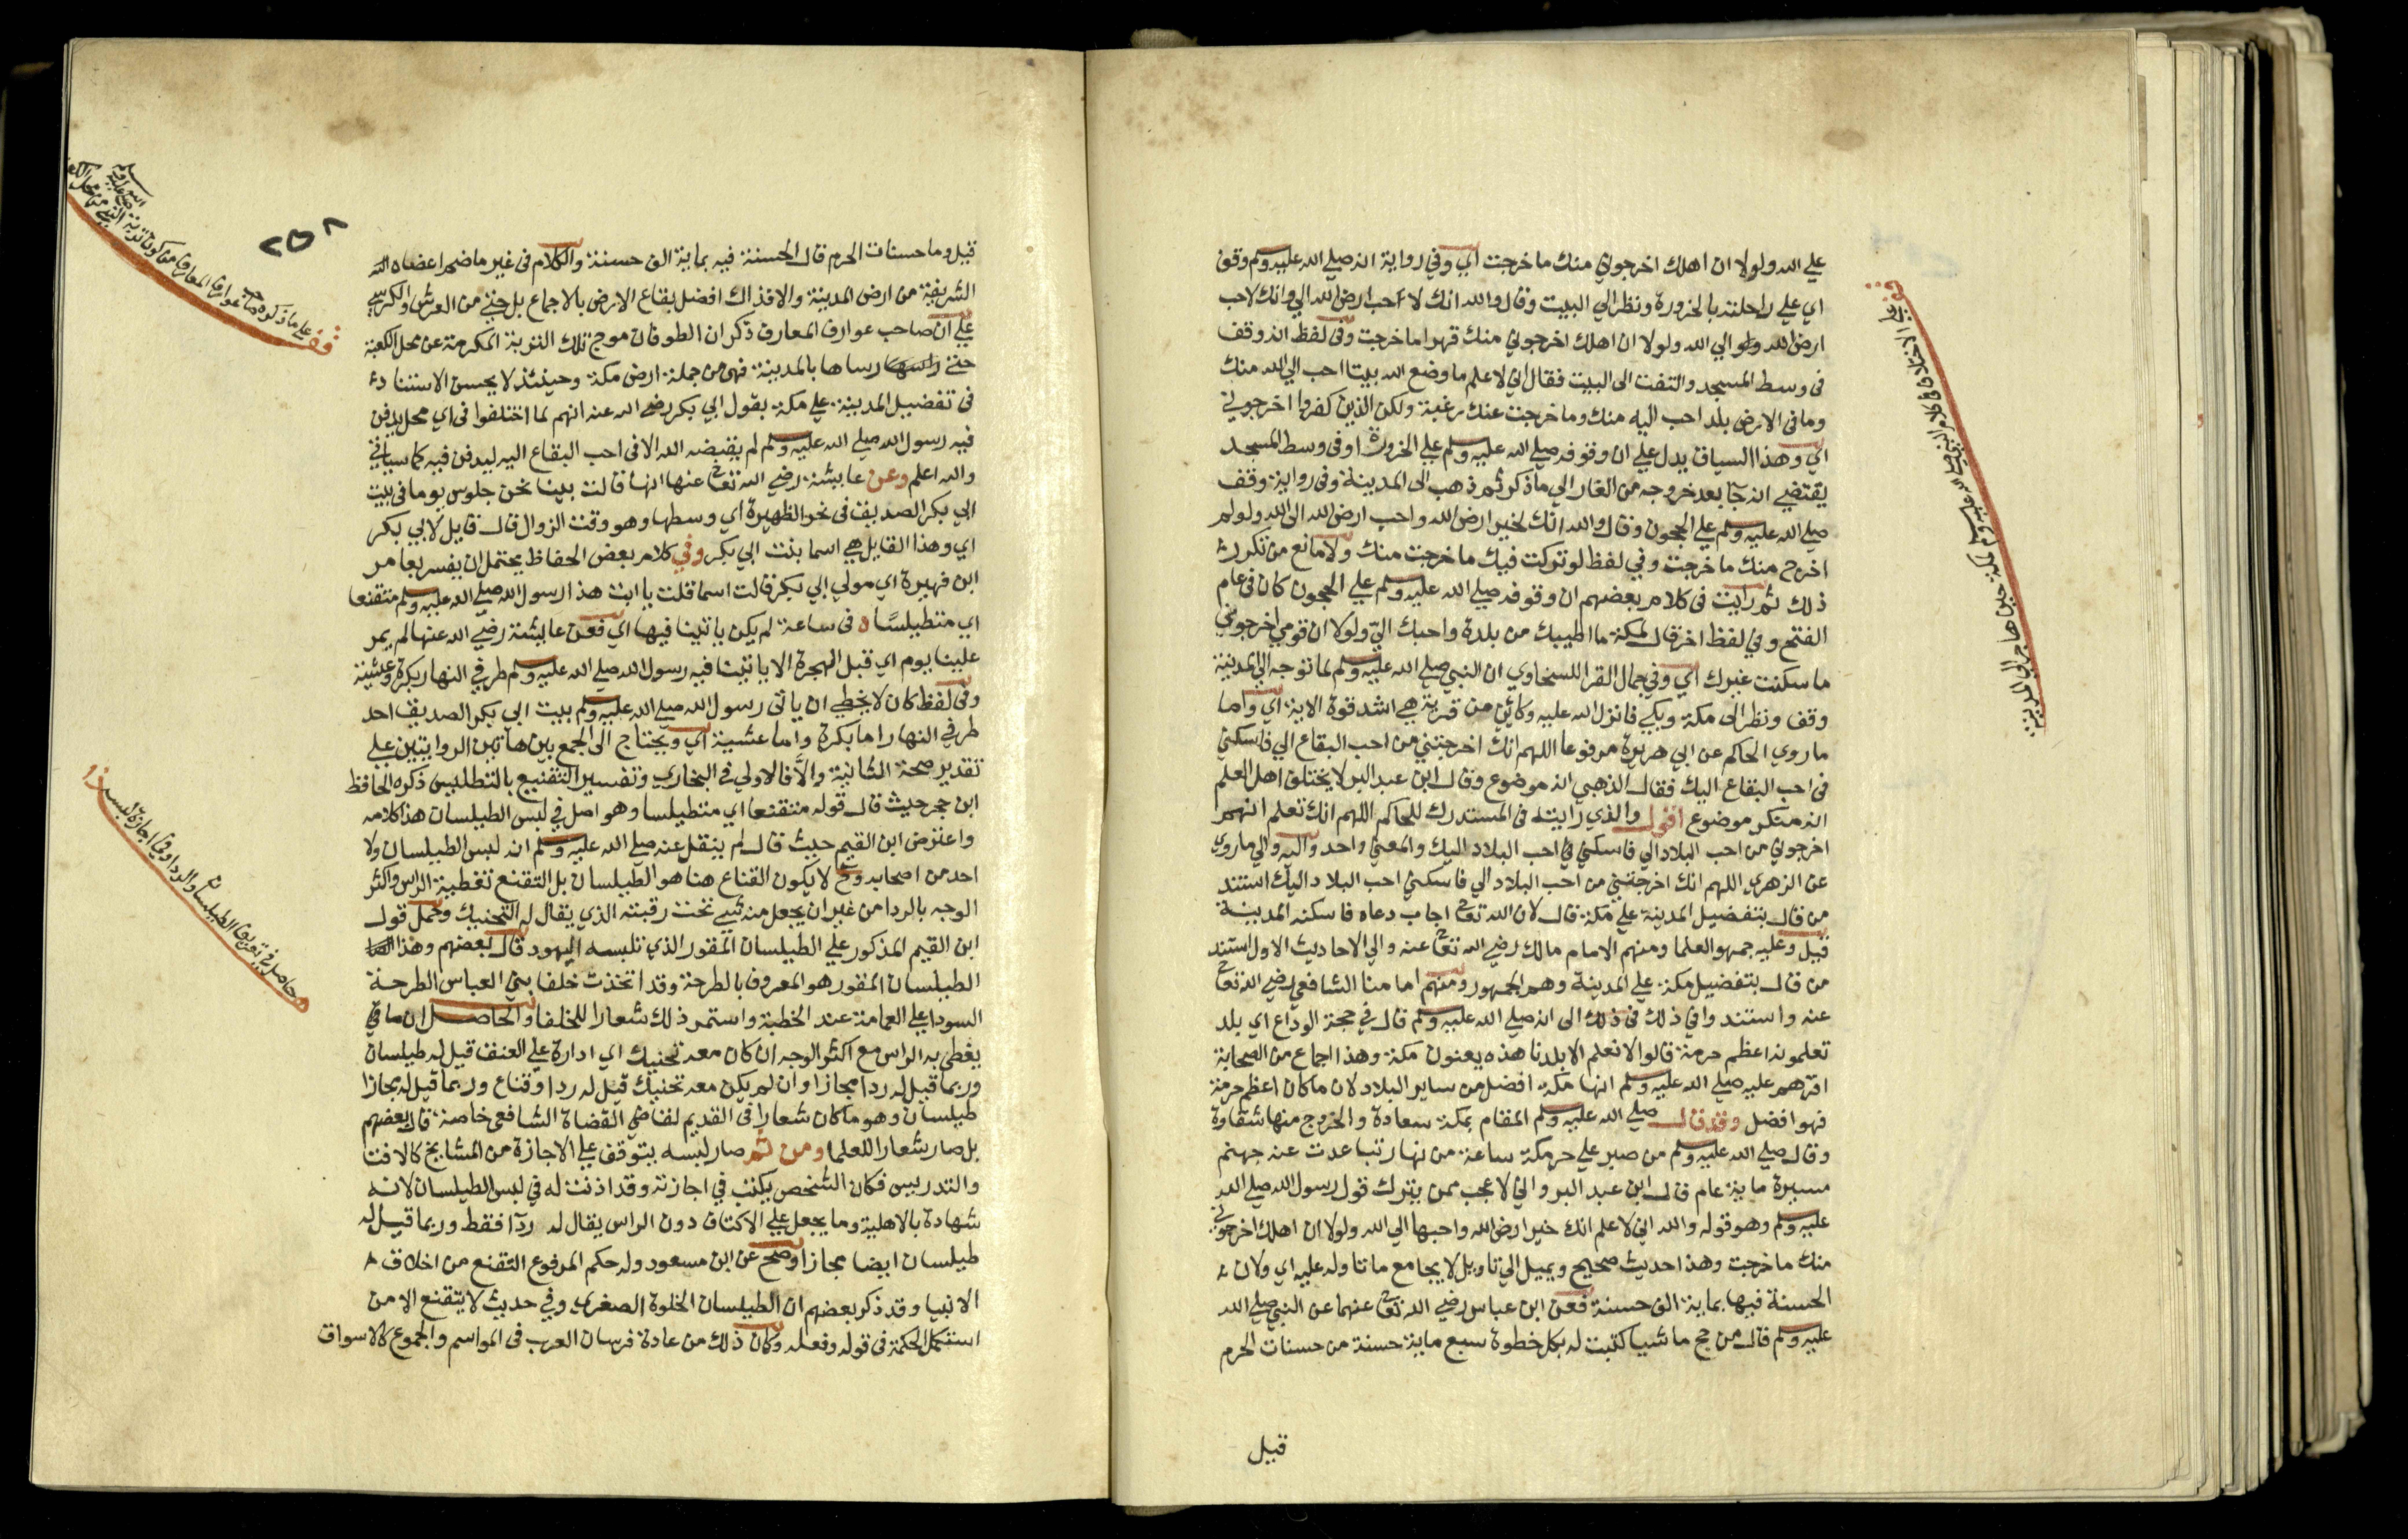 علي الله ولولا ان اهلك اخرجوني منك ما خرجت اي وفي رواية انه صلي الله عليه وسلم وقف
اي علي راحلته بالحزورة ونظر الي البيت وقال والله انك لاحب ارض الله الي وانك لاحب
ارض الله الي الله ولولا ان اهلك اخرجوني منك قهرا ما خرجت وفي لفظ انه وقف
في وسط المسجد والتفت الى البيت فقال اني لاعلم ما وضع الله بيتا احب الي الله منك
وما في الارض بلد احب اليه منك وما خرجت عنك رغبة ولكن الذين كفروا اخرجوني
اي وهذا السياق يدل علي ان وقوفه صلي الله عليه وسلم علي الحزورة او في وسط المسجد
يقتضي انه جآ بعد خروجه من الغار الي ما ذكر ثم ذهب الى المدينة وفي رواية وقف
صلي الله عليه وسلم علي الحجون وقال والله انك لخير ارض الله واحب ارض الله الى الله ولو لم
اخرج منك ما خرجت وفي لفظ لو تركت فيك ما خرجت منك ولا مانع من تكرر
ذلك ثم رايت في كلام بعضهم ان وقوفه صلي الله عليه وسلم علي الحجون كان في عام
الفتح وفي لفظ اخر قال لمكة ما اطيبك من بلدة واحبك الي ولولا ان قومي اخرجوني
ما سكنت غيرك اي وفي جمال القرا للسخاوي ان النبي صلي الله عليه وسلم لما توجه الي المدينة
وقف ونظر الى مكة وبكي فانزل الله عليه وكائن من قرية هي اشد قوة الاية اي واما
ما روي الحاكم عن ابي هريرة مرفوعا اللهم انك اخرجتني من احب البقاع الي فاسكني
في احب البقاع اليك فقال الذهبي انه موضوع وقال ابن عبد البر لا يختلف اهل العلم
انه منكر موضوع اقول والذي رايته في المستدرك للحاكم اللهم انك تعلم انهم
اخرجوني من احب البلاد الي فاسكني في احب البلاد اليك والمعني واحد واليه والي ما روي
عن الزهري اللهم انك اخرجتني من احب البلاد الي فاسكني احب البلاد اليك استند
من قال بتفضيل المدينة علي مكة قال لان الله تعالى اجاب دعاه فاسكنه المدينة
قيل وعليه جمهور العلما ومنهم الامام مالك رضي الله تعالى عنه والي الاحاديث الاول استند
من قال بتفضيل مكة علي المدينة وهم الجمهور ومنهم امامنا الشافعي رضي الله تعالى
عنه واستند وافي ذلك في ذلك الى انه صلي الله عليه وسلم قال في حجة الوداع اي بلد
تعلمونه اعظم حرمة قالوا لا نعلم الا بلدنا هذه يعنون مكة وهذا اجماع من الصحابة
اقرهم عليه صلي الله عليه وسلم انها مكة افضل من ساير البلاد لان ما كان اعظم حرمة
فهو افضل وقد قال صلي الله عليه وسلم المقام بمكة سعادة والخروج منها شقاوة
وقال صلي الله عليه وسلم من صبر علي حر مكة ساعة من نهار تباعدت عنه جهنم
مسيرة ماية عام قال ابن عبد البر واني لاعجب ممن يترك قول رسول الله صلي الله
عليه وسلم وهو قوله والله اني لاعلم انك خير ارض الله واحبها الي الله ولولا ان اهلك اخرجوني
منك ما خرجت وهذا حديث صحيح ويميل الي تاويل لا يجامع ما تاوله عليه اي ولان
الحسنة فيها بماية الف حسنة فعن ابن عباس رضي الله تعالى عنهما عن النبي صلي الله
عليه وسلم قال من حج ماشيا كتبت له بكل خطوة سبع ماية حسنة من حسنات الحرم
قيل
قف علي الاختلاف في كلام النبي صلي الله عليه وسلم لمكة حين هاجر الي المدينة
٢٥٨
قيل وما حسنات الحرم قال الحسنة فيه بماية الف حسنة والكلام في غير ما ضم اعضاه
الشريفة من ارض المدينة والا فذاك افضل بقاع الارض بالاجماع بل حتي من العرش والكرسي
علي ان صاحب عوارف المعارف ذكر ان الطوفان موج تلك التربة المكرمة عن محل الكعبة
حتي رساها بالمدينة فهي من جملة ارض مكة وحينئذ لا يحسن الاستناد
في تفضيل المدينة علي مكة بقول ابي بكر رضي الله عنه انهم لما اختلفوا في اي محل يدفن
فيه رسول الله صلي الله عليه وسلم لم يقبضه الله الا في احب البقاع اليه ليدفن فيه كما سياتي
والله اعلم وعن عايشة رضي الله تعالى عنها انها قالت بينا نحن جلوس يوما في بيت
ابي بكر الصديق في نحر الظهيرة اي وسطها وهو وقت الزوال قال قايل لابي بكر
اي وهذا القايل هي اسما بنت ابي بكر وفي كلام بعض الحفاظ يحتمل ان يفسر بعامر
ابن فهيرة اي مولي ابي بكر قالت اسما قلت يا ابت هذا رسول الله صلي الله عليه وسلم متقنعا
اي متطيلسا في ساعة لم يكن ياتينا فيها اي فعن عايشة رضي الله عنها لم يمر
علينا يوم اي قبل الهجرة الا ياتينا فيه رسول الله صلي الله عليه وسلم طرفي النهار بكرة وعشية
وفي لفظ كان لا يخطي ان ياتي رسول الله صلي الله عليه وسلم بيت ابي بكر الصديق احد
طرفي النهار اما بكرة واما عشية اي ويحتاج الى الجمع بين هاتين الروايتين علي
تقدير صحة الثانية والا فالاولي في البخاري وتفسير التقنيع بالتطليس ذكره الحافظ
ابن حجر حيث قال قوله متقنعا اي متطيلسا وهو اصل في لبس الطيلسان هذا كلامه
واعترض ابن القيم حيث قال لم ينقل عنه صلي الله عليه وسلم انه لبس الطيلسان ولا
احد من اصحابه وح لا يكون القناع هنا هو الطيلسان بل التقنع تغطية الراس واكثر
الوجه بالردا من غير ان يجعل منه شي تحت رقبته الذي يقال له التحنيك وحمل قول
ابن القيم المذكور علي الطيلسان المقور الذي تلبسه اليهود قال بعضهم وهذا
الطيلسان المقور هو المعروف بالطرحة وقد اتخذت خلفا بني العباس الطرحة
السودا علي العمامة عند الخطبة واستمر ذلك شعارا للخلفا والحاصل ان ما
يغطي به الراس مع اكثر الوجه ان كان معه تحنيك اي ادارة علي العنق قيل له طيلسان
وربما قيل له ردا مجازا وان لم يكن معه تحنيك قيل له ردا وقناع وربما قيل له مجازا
طيلسان وهو ما كان شعارا في القديم لقاضي القضاة الشافعي خاصة قال بعضهم
بل صار شعارا للعلما ومن ثم صار لبسه يتوقف علي الاجازة من المشايخ كالافتا
والتدريس فكان الشخص يكتب في اجازته وقد اذنت له في لبس الطيلسان لانه
شهادة بالاهلية وما يجعل علي الاكتاف دون الراس يقال له ردآ فقط وربما قيل له
طيلسان ايضا مجازا وصح عن ابن مسعود وله حكم المرفوع التقنع من اخلاق
الانبيا وقد ذكر بعضهم ان الطيلسان الخلوة الصغري وفي حديث لا يتقنع الا من
استكمل الحكمة في قوله وفعله وكان ذلك من عادة فرسان العرب في المواسم والجموع كالاسواق
قف علي ما ذكره صاحب عوارف المعارف
حاصل في تعريف الطيلسان والردا وفي اجازة لبسه